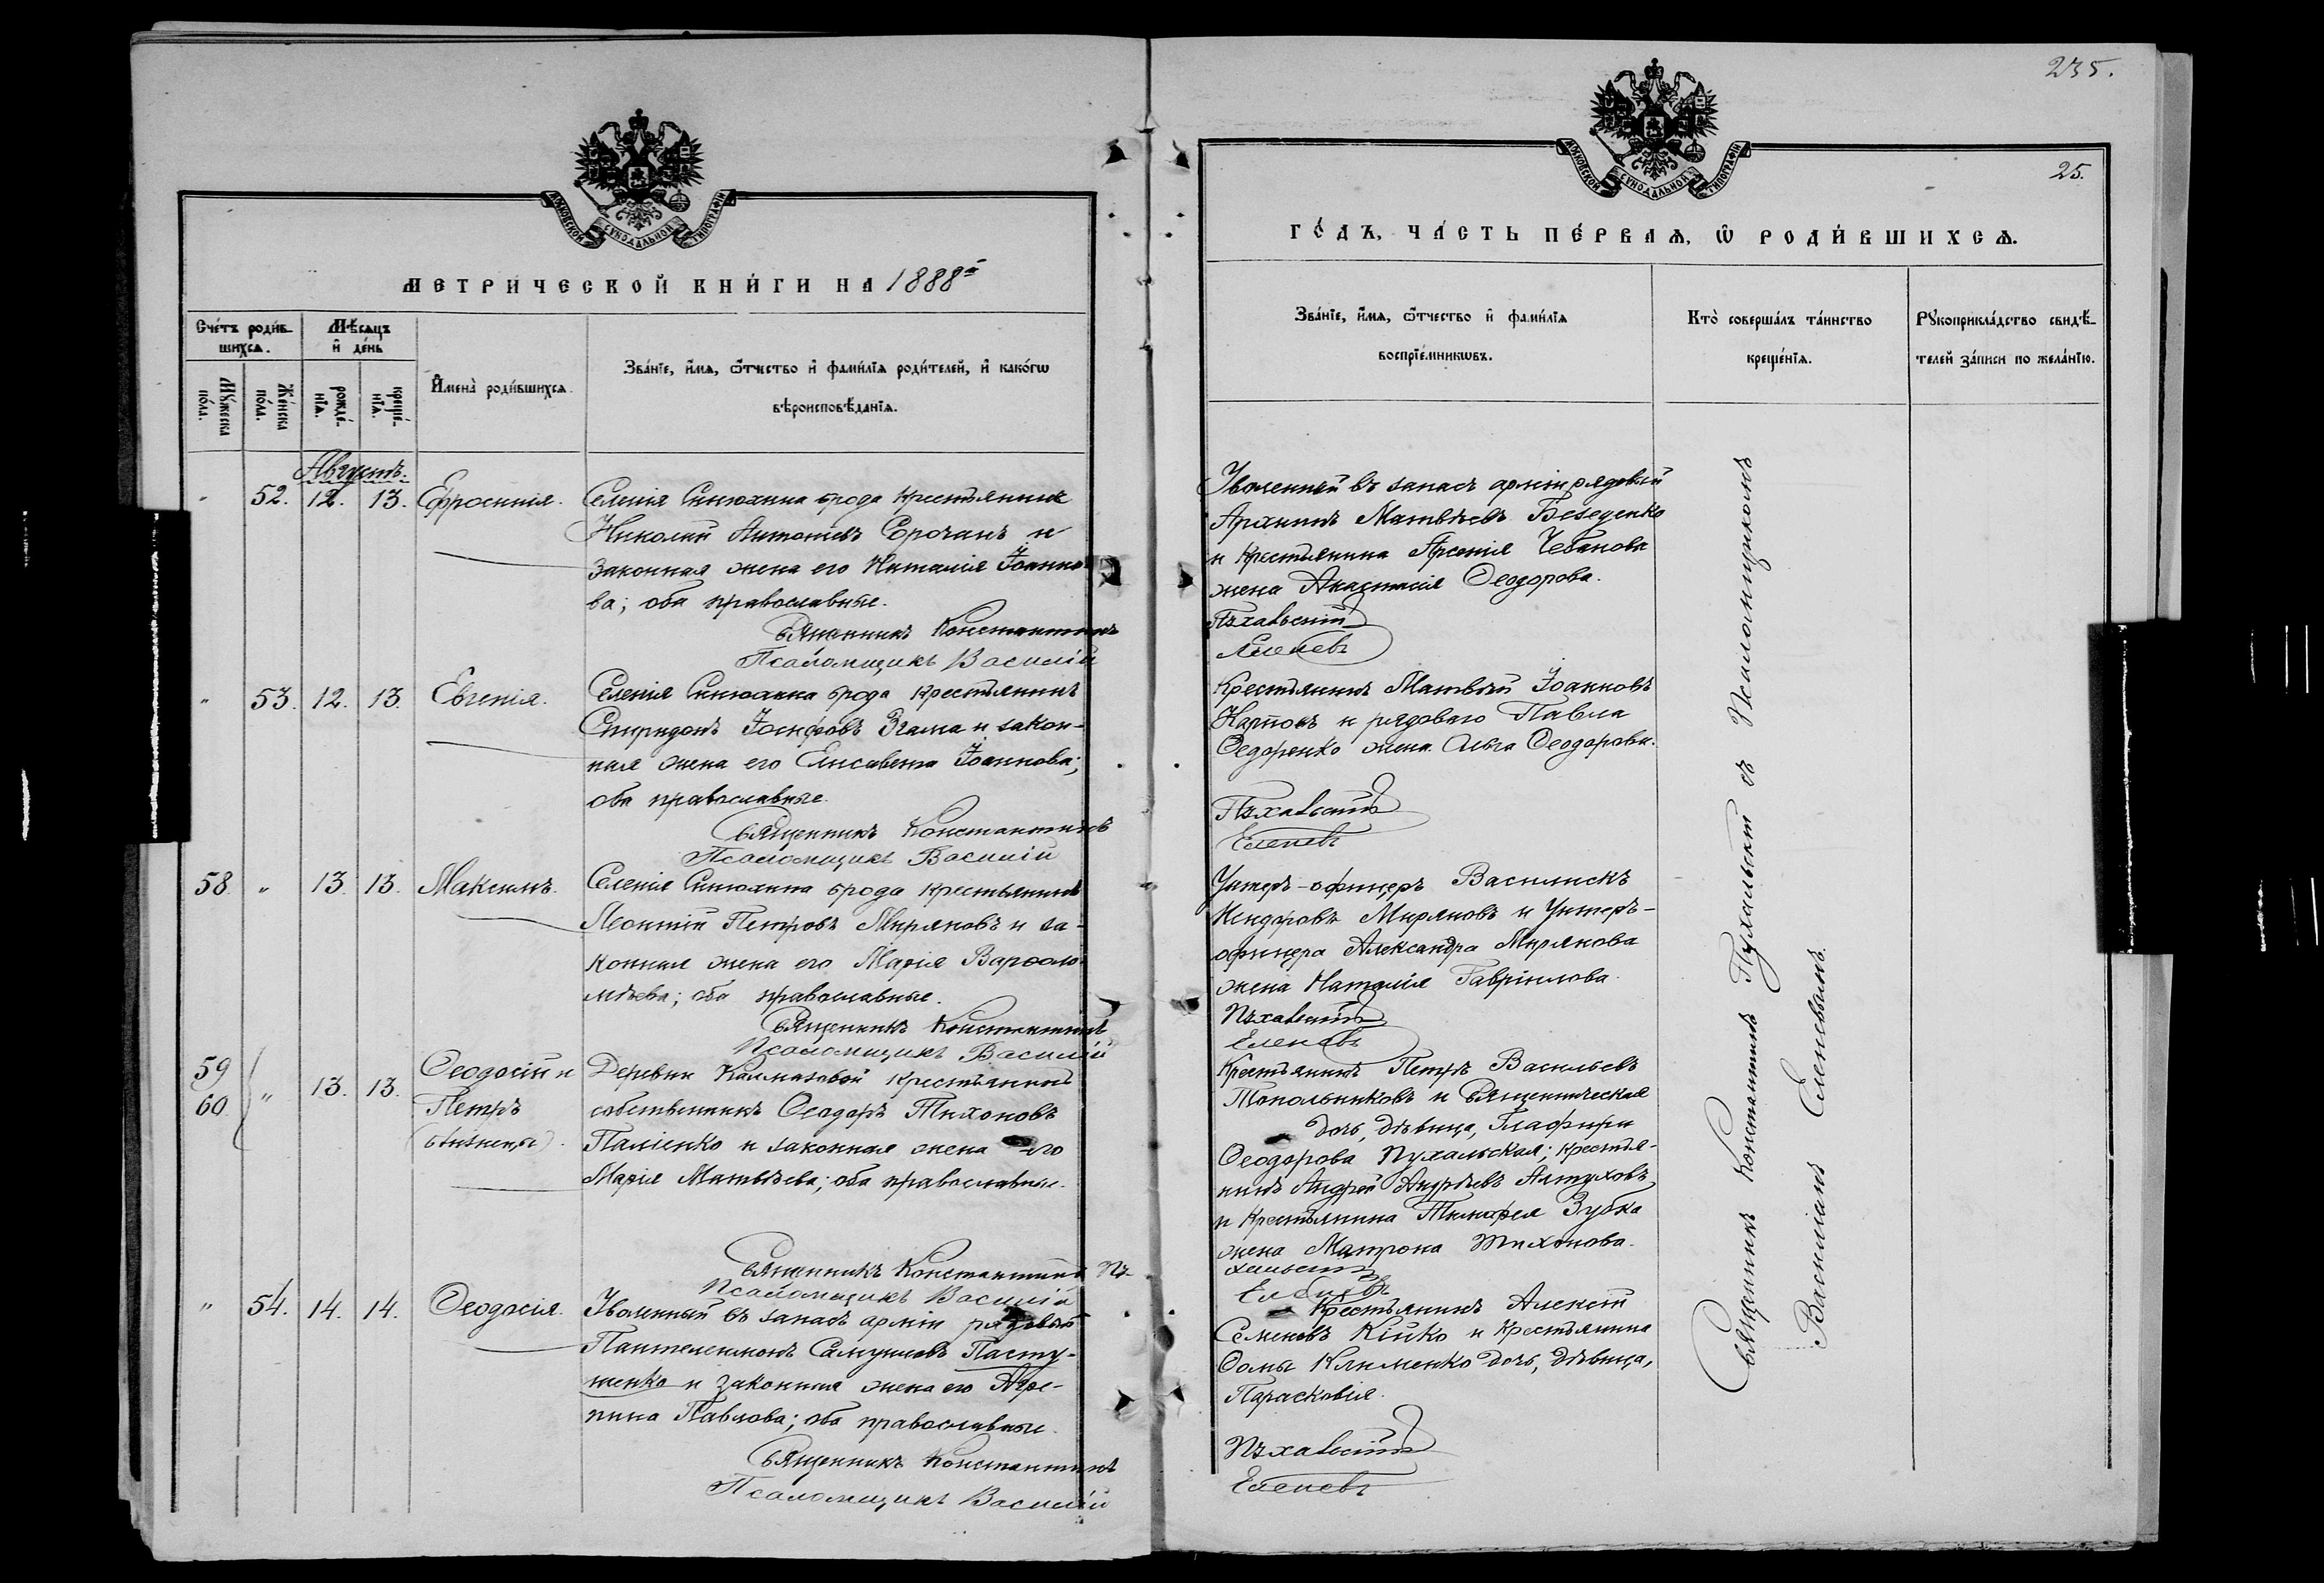 235.
25.
МЕТРИЧЕСКОЙ КНИГИ НА 1888й
ГОДЪ, ЧАСТЬ ПЕРВАЯ, Ѡ РОДИВШИХСЯ.
Счетъ родив-
шихся.
Мѣсяцъ
и день
Мꙋжеска
пола.
Женска
пола.
рожде-
нїя.
креще-
нїя.
Имена родившихся.
Званїе, имя, ѿчество и фамилїя родителей, и какогѡ
вѣроисповѣданїя.
Званїе, имя, ѿчество и фамилїя
воспрїемникѡвъ.
Кто совершалъ таинство
крещенїя.
Рꙋкоприкладство свидѣ-
телей записи по желанїю.
Августъ.
" 52. 12. 13. Ефросинія.
Селенія Синюхина брода крестьянинъ
Николай Антоніевъ Сорочанъ и
законная жена его Наталія Іоанно-
ва; оба православные.
Священникъ Константинъ
Псаломщикъ Василій
Уволенный въ запасъ арміи рядовый
Архипъ Матвѣевъ
и крестьянина Арсенія Чебанова
жена Анастасія Ѳеодорова.
Пухальскій
Еленевъ
" 53. 12. 13. Евгенія.
Селенія Синюхина брода крестьянинъ
Спиридонъ Іосифовъ Згама и закон-
ная жена его Елисавета Іоаннова;
оба православные.
Священникъ Константинъ
Псаломщикъ Василій
Крестьянинъ Матвѣй Іоанновъ
и рядоваго Павла
Ѳедоренко жена Ольга Ѳеодорова.
Пухальскій
Еленевъ
58. " 13. 13. Максимъ.
Селенія Синюхина брода крестьянинъ
Леонтій Петровъ Миряновъ и за-
конная жена его Марія Варѳоло-
мѣева; оба православные.
Священникъ Константинъ
Псаломщикъ Василій
Унтеръ-офицеръ Василискъ
Миряновъ и Унтеръ-
офицера Александра Мирянова
жена Наталія Гавріилова.
Пухальскій
Еленевъ
59
60 " 13. 13. Ѳеодосій и
Петръ
(близнецы).
Деревни Калмазовой крестьянинъ
собственникъ Ѳеодоръ Тихоновъ
Паліенко и законная жена его
Марія Матвѣева; оба православные.
Священникъ Константинъ Пу-
Псаломщикъ Василій
Крестьянинъ Петръ Васильевъ
Топольниковъ и Священническая
дочь, дѣвица, Глафира
Ѳеодорова Пухальская; крестья-
нинъ Андрей Андреевъ Алтуховъ
и крестьянина Тимоѳея Зубка
жена Матрона Тихонова.
хальскій
Еленевъ
" 54. 14. 14. Ѳеодосія.
Уволенный въ запасъ арміи рядовый
Пантелеимонъ Самуиловъ Пасту-
шенко и законная жена его Агре-
пина Павлова; оба православные.
Священникъ Константинъ
Псаломщикъ Василій
Крестьянинъ Алексій
Семеновъ Кійко и крестьянина
Ѳомы Клименко дочь, дѣвица,
Параскевія.
Пухальскій
Еленевъ
Священникъ Константинъ Пухальскій съ Псаломщикомъ
Василіемъ Еленевымъ.